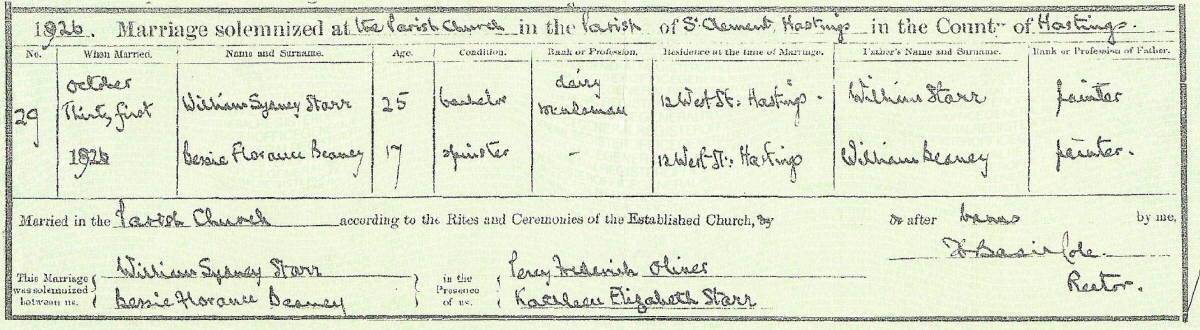 1926. Marriage solemnized at the Parish Church in the Parish of St Clement, Hastings in the County of Hastings.
No. When Married. Name and Surname. Age. Condition. Rank or Profession. Residence at the time of Marriage. Father's Name and Surname. Rank or Profession of Father.
29 October Thirty first 1926
William Sydney Starr 25 bachelor dairy 12 West St: Hastings. William Starr painter
Bessie Florance Beaney 17 spinster - 12 West St: Hastings William Beaney painter.
Married in the Parish Church according to the Rites and Ceremonies of the Established Church, by or after banns by me,
This Marriage was solemnized between us, { William Sydney Starr } in the Presence of us, { Percy Frederick Oliver
Bessie Florance Beaney Kathleen Elizabeth Starr
Basil Cole
Rector.